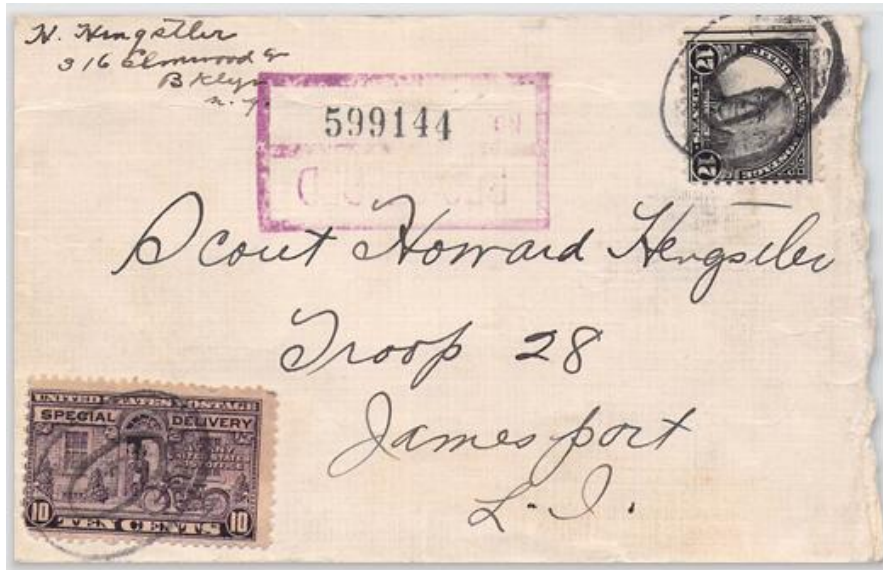 H. Hengstler
316 Elmwood Av
Bklyn
N.Y.
599144
No
UNITED STATES POSTAGE
17 CENTS 17
Scout Howard Hengstler
Troop 28
Jamesport
L.I.
UNITED STATES POSTAGE
SPECIAL DELIVERY
10 TEN CENTS 10